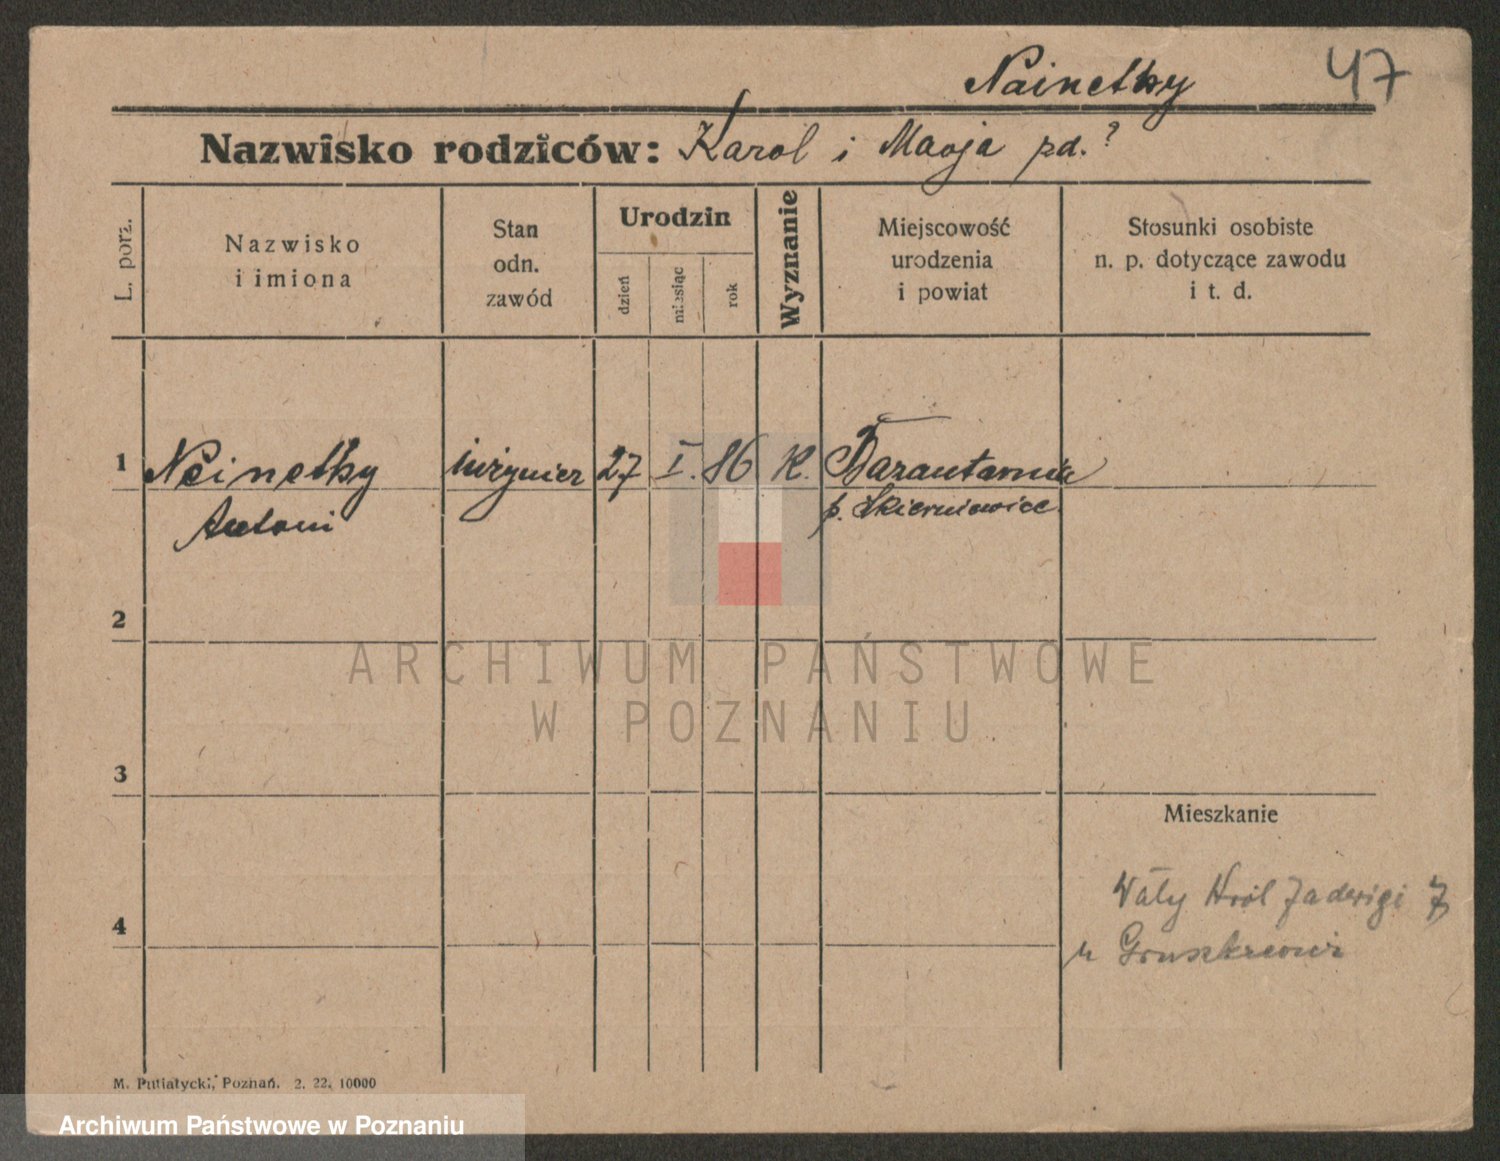 Nainetky 47
Nazwisko rodziców: Karol i Marja zd.?
L. porz.
Nazwisko
i imiona
Stan
odn.
zawód
Urodzin
dzień
miesiąc
rok
Wyznanie
Miejscowość
urodzenia
i powiat
Stosunki osobiste
n. p. dotyczące zawodu
i t. d.
1 Neinetky inżynier 27 I. 86 K. Bazantarnia
Antoni p. Skierniewice
2
ARCHIWUM PAŃSTWOWE
W POZNANIU
3
Mieszkanie
Wały Król Jadwigi 7
4
u
M. Putiatycki, Poznań. 2. 22. 10000
Archiwum Państwowe w Poznaniu